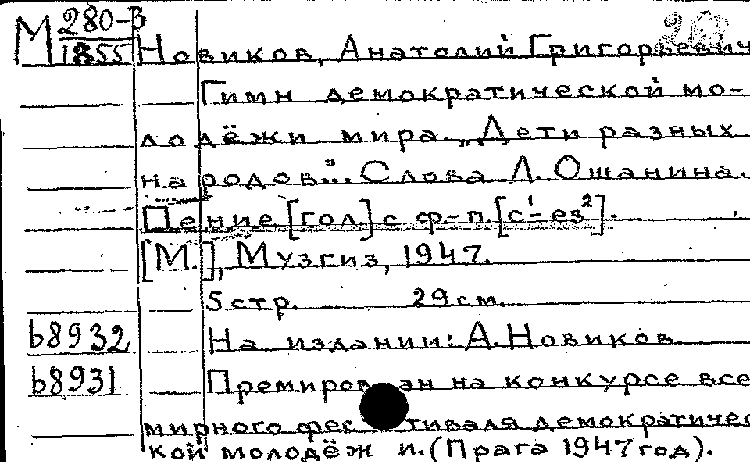 М 280-В
1855
Новиков, Анатолий Григорьевич
Гимн демократической мо-
лодёжи мира. „Дети разных
народов"... Слова Л. Ошанина.
Пение [гол] с ф-п. [c¹-es²].
[М.], Музгиз, 1947.
5 стр. 29 см.
b8932 На издании: А. Новиков
b8931 Премирован на конкурсе все
мирного фестиваля демократичес
кой молодёжи. (Прага 1947 год).